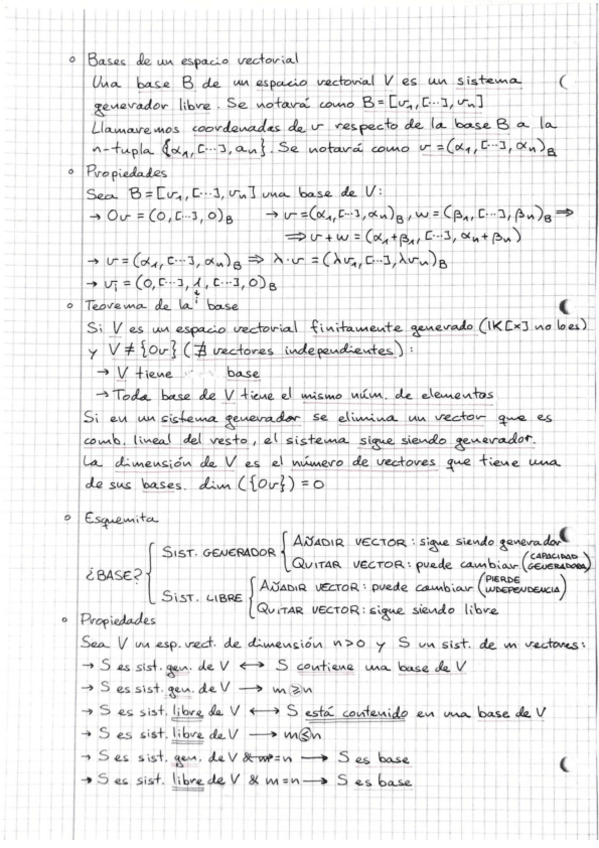 ◦ Bases de un espacio vectorial
Una base B de un espacio vectorial V es un sistema
generador libre. Se notará como B=[v₁, [...], vₙ]
Llamaremos coordenadas de v respecto de la base B a la
n-tupla {α₁, [...], aₙ}. Se notará como v=(α₁, [...], αₙ)_B
◦ Propiedades
Sea B=[v₁, [...], vₙ] una base de V:
→ Ov = (0, [...], 0)_B → v=(α₁, [...], αₙ)_B, w=(β₁, [...], βₙ)_B ⇒
⇒ v+w = (α₁+β₁, [...], αₙ+βₙ)
→ v=(α₁, [...], αₙ)_B ⇒ λ·v = (λv₁, [...], λvₙ)_B
→ vᵢ = (0, [...], 1, [...], 0)_B
i
◦ Teorema de la base
Si V es un espacio vectorial finitamente generado (IK[x] no lo es)
y V ≠ {Ov} (∄ vectores independientes):
→ V tiene base
→ Toda base de V tiene el mismo núm. de elementos
Si en un sistema generador se elimina un vector que es
comb. lineal del resto, el sistema sigue siendo generador.
La dimensión de V es el número de vectores que tiene una
de sus bases. dim ({Ov}) = 0
◦ Esquemita
¿BASE?
SIST. GENERADOR
AÑADIR VECTOR: sigue siendo generador
QUITAR VECTOR: puede cambiar (CAPACIDAD GENERADORA)
SIST. LIBRE
AÑADIR VECTOR: puede cambiar (PIERDE INDEPENDENCIA)
QUITAR VECTOR: sigue siendo libre
◦ Propiedades
Sea V un esp. vect. de dimensión n>0 y S un sist. de m vectores:
→ S es sist. gen. de V ⟷ S contiene una base de V
→ S es sist. gen. de V ⟶ m≥n
→ S es sist. libre de V ⟷ S está contenido en una base de V
→ S es sist. libre de V ⟶ m≤n
→ S es sist. gen. de V & m=n ⟶ S es base
→ S es sist. libre de V & m=n ⟶ S es base